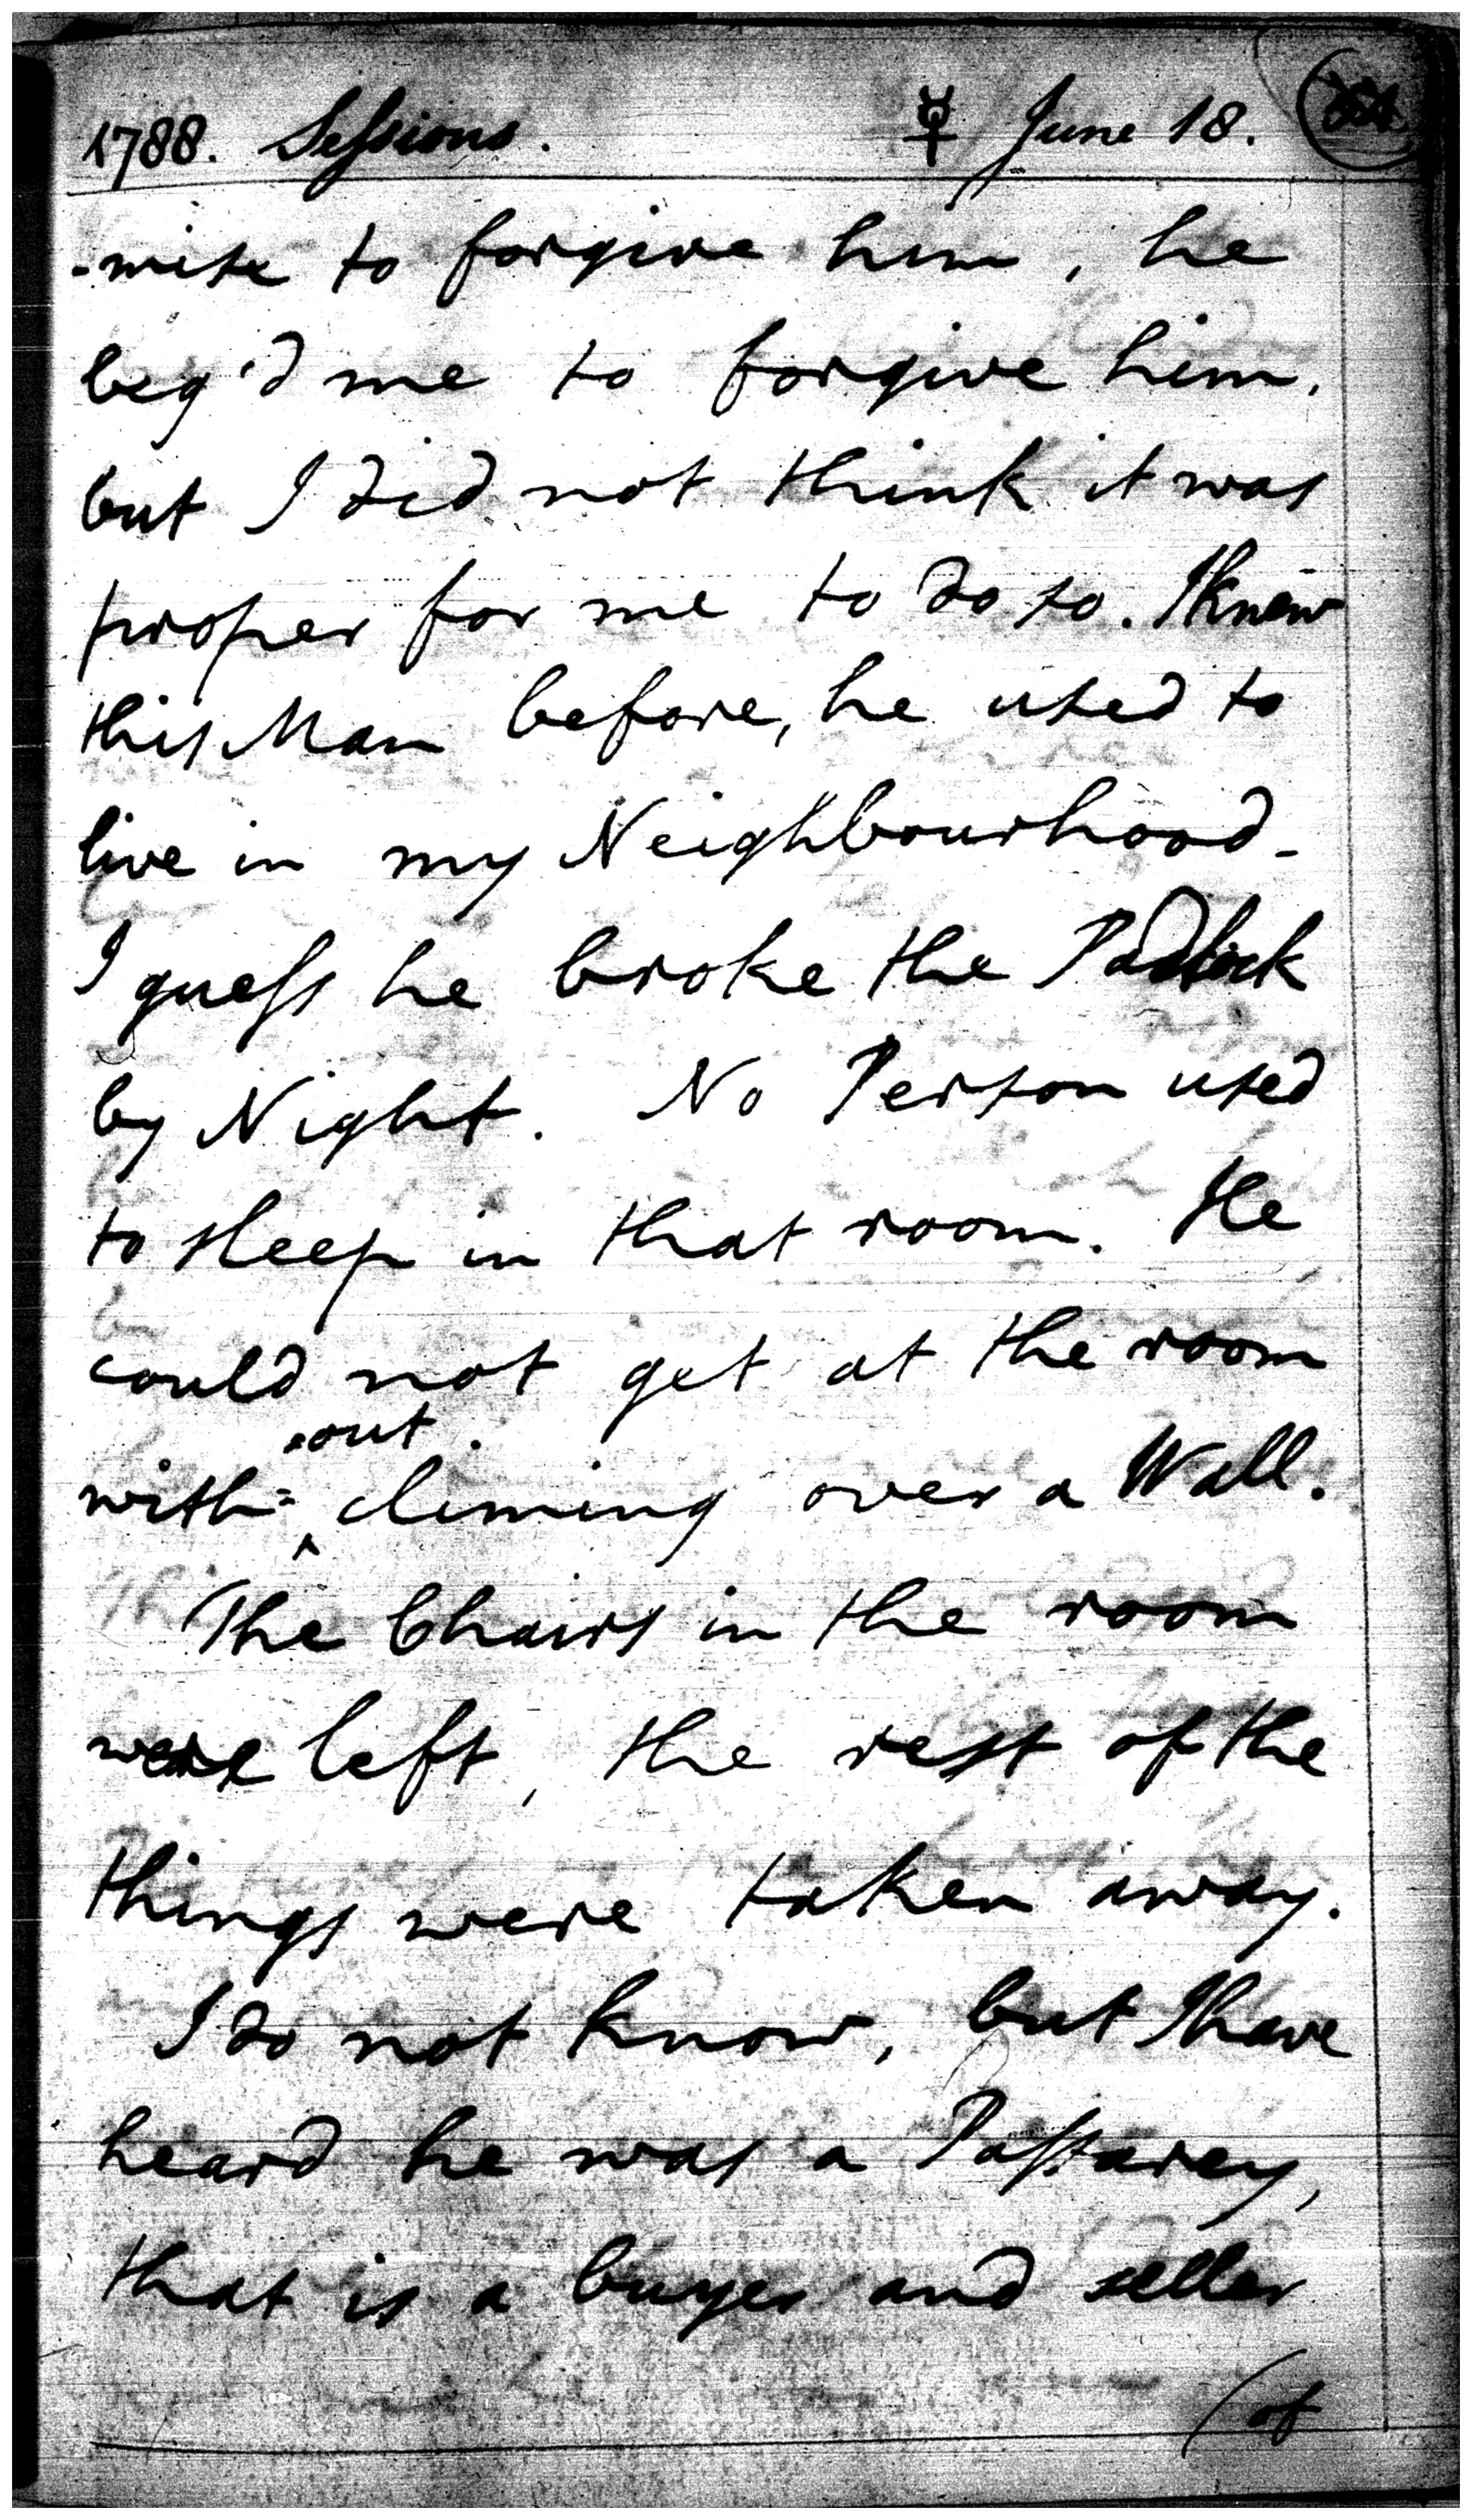 1788. Sessions. ☿ June 18.
-mise to forgive him, he
beg'd me to forgive him,
but I did not think it was
proper for me to do so. I knew
this Man before, he used to
live in my Neighbourhood-
I guess he broke the Padlock
by Night. No Person used
to sleep in that room. He
could not get at the room
=out
with= climing over a Wall.
The Chairs in the room
were left, the rest of the
things were taken away.
I do not know, but I have
heard he was a Passarey,
that is a buyer and seller
(of